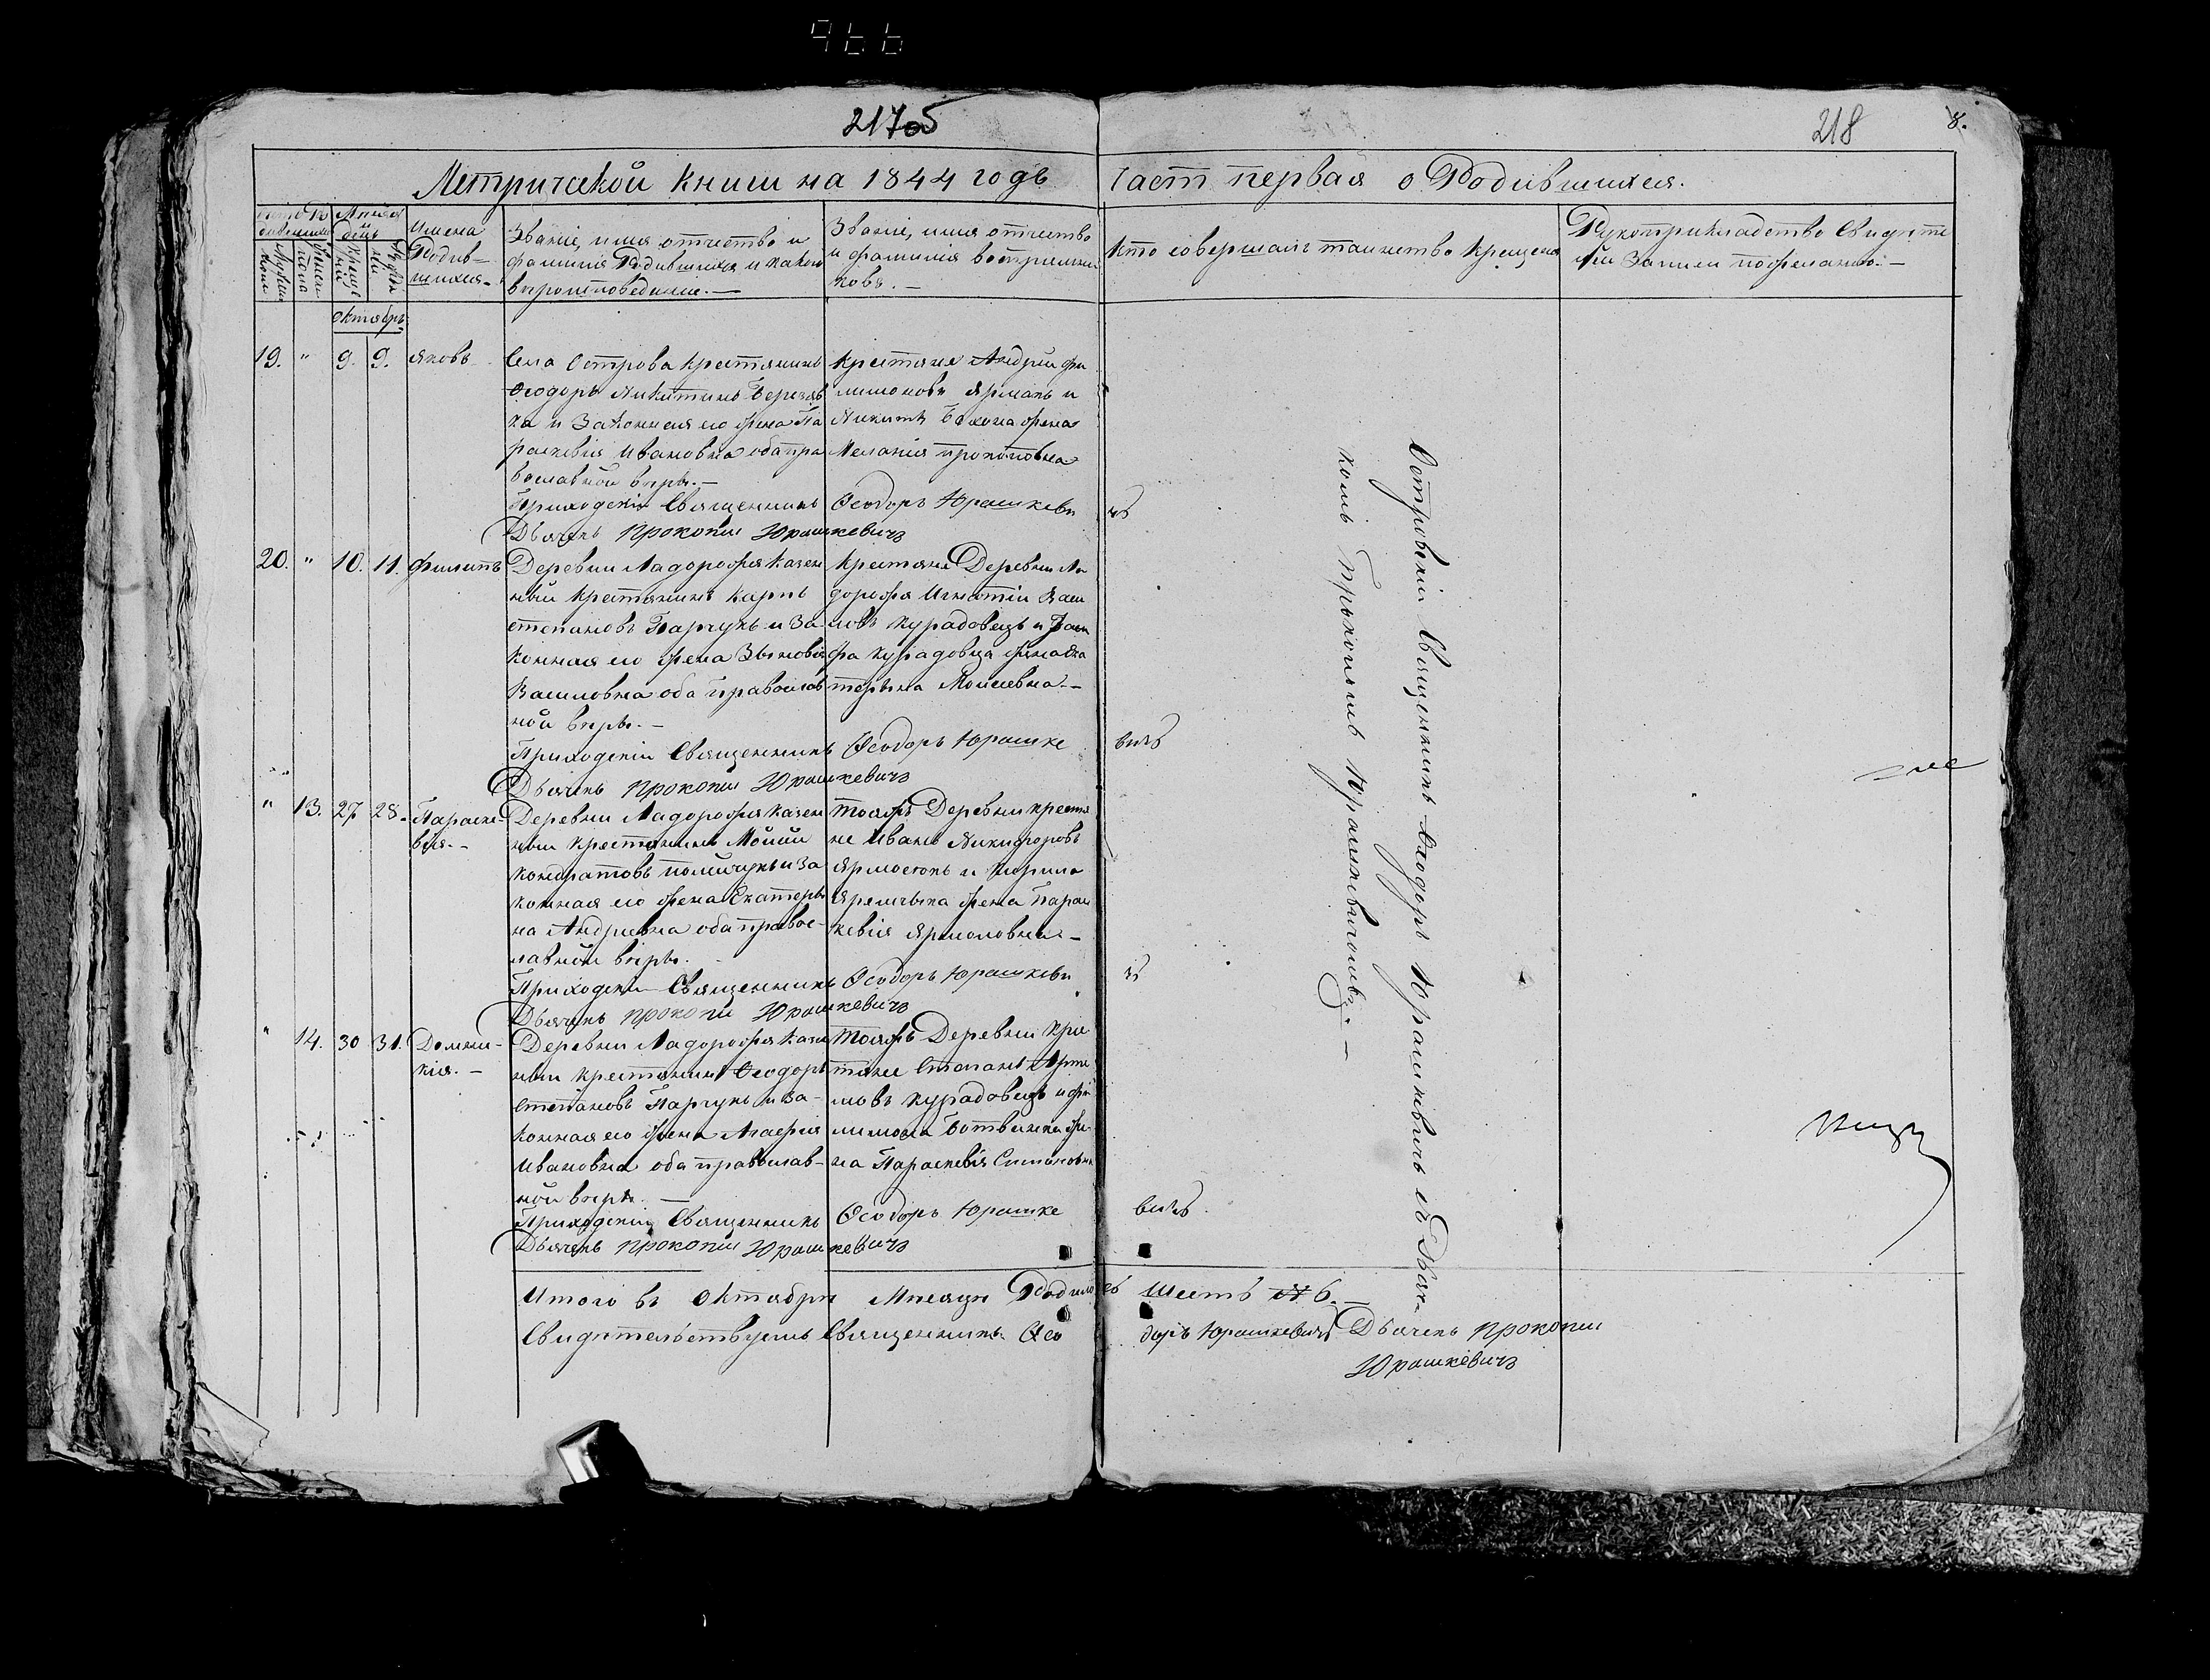 966
217об
218
8.
Метрической книги на 1844 годъ Част первая о Родившихся.
Имена
Родив-
шихся.
Званіе, имя отчество и
фамилія Родившихся и какого
вѣроисповеданіе.—
Званіе, имя отчество
и фамилія воспріемни
ковъ.—
Кто совершалъ таинство крещенія
Рукоприкладство Свидѣте
лей Записи по желанію.—
Октябрь
19. " 9. 9. Яковъ
Села Острова крестянинъ
Феодоръ Никитинъ
и Законная его жена Па
раскевія Ивановна оба пра
вославной вѣры.—
Крестяне Андрей Фи
лимоновъ Ярмакъ и
Никиты жена
Меланія Прокоповна
Приходскій Священникъ Феодоръ Юрашкеви чъ
Дьячекъ Прокопій Юрашкевичъ
20. " 10. 11. Филипъ
Деревни Мадорожя казен
ный крестянинъ Карпъ
Степановъ Парчукъ и За
конная его жена Зѣновія
Василовна оба Православ
ной вѣры.—
Крестяне Деревни Ма
дорожя Игнатій Васи
ловъ Курадовецъ и
Курадовца жена Ека
терына Моисевна.—
Приходскій Священникъ Феодоръ Юрашке вичъ
Дьячекъ Прокопій Юрашкевичъ
" 13. 27 28. Параске-
вія.—
Деревни Мадорожя казен
ный крестянинъ Мойсей
Кондратовъ и за
конная его жена Екатеры
на Андреевна оба право-
лавной вѣры.
Тояжъ Деревни крестя
не Иванъ Никифоровъ
и Кирила
жена Парас
кевія Ярмоловна—
Приходскій Священникъ Феодоръ Юрашкеви чъ
Дьячекъ Прокопій Юрашкевичъ
" 14. 30 31. Домни-
кія.—
Деревни Мадорожя казен
ный крестянинъ Феодоръ
Степановъ Парчукъ и за-
конная его жена Агафія
Ивановна оба православ-
ной вѣры.—
Тояжъ Деревни Крес
тяне Степанъ Арте
мовъ Курадовецъ и Фи
лимона Ботвинка же
на Параскевія Симановна
Приходскій Священникъ Феодоръ Юрашке вичъ
Дьячекъ Прокопій Юрашкевичъ
Островскій Священникъ Феодоръ Юрашкевичъ съ Дьяч-
комъ Прокопіемъ Юрашкевичомъ.—
Итого въ Октябрѣ Мѣсяцѣ Родилось шесть № 6.—
Свидѣтельствуемъ Священникъ Фео доръ Юрашкевичъ Дьячекъ Прокопій
Юрашкевичъ